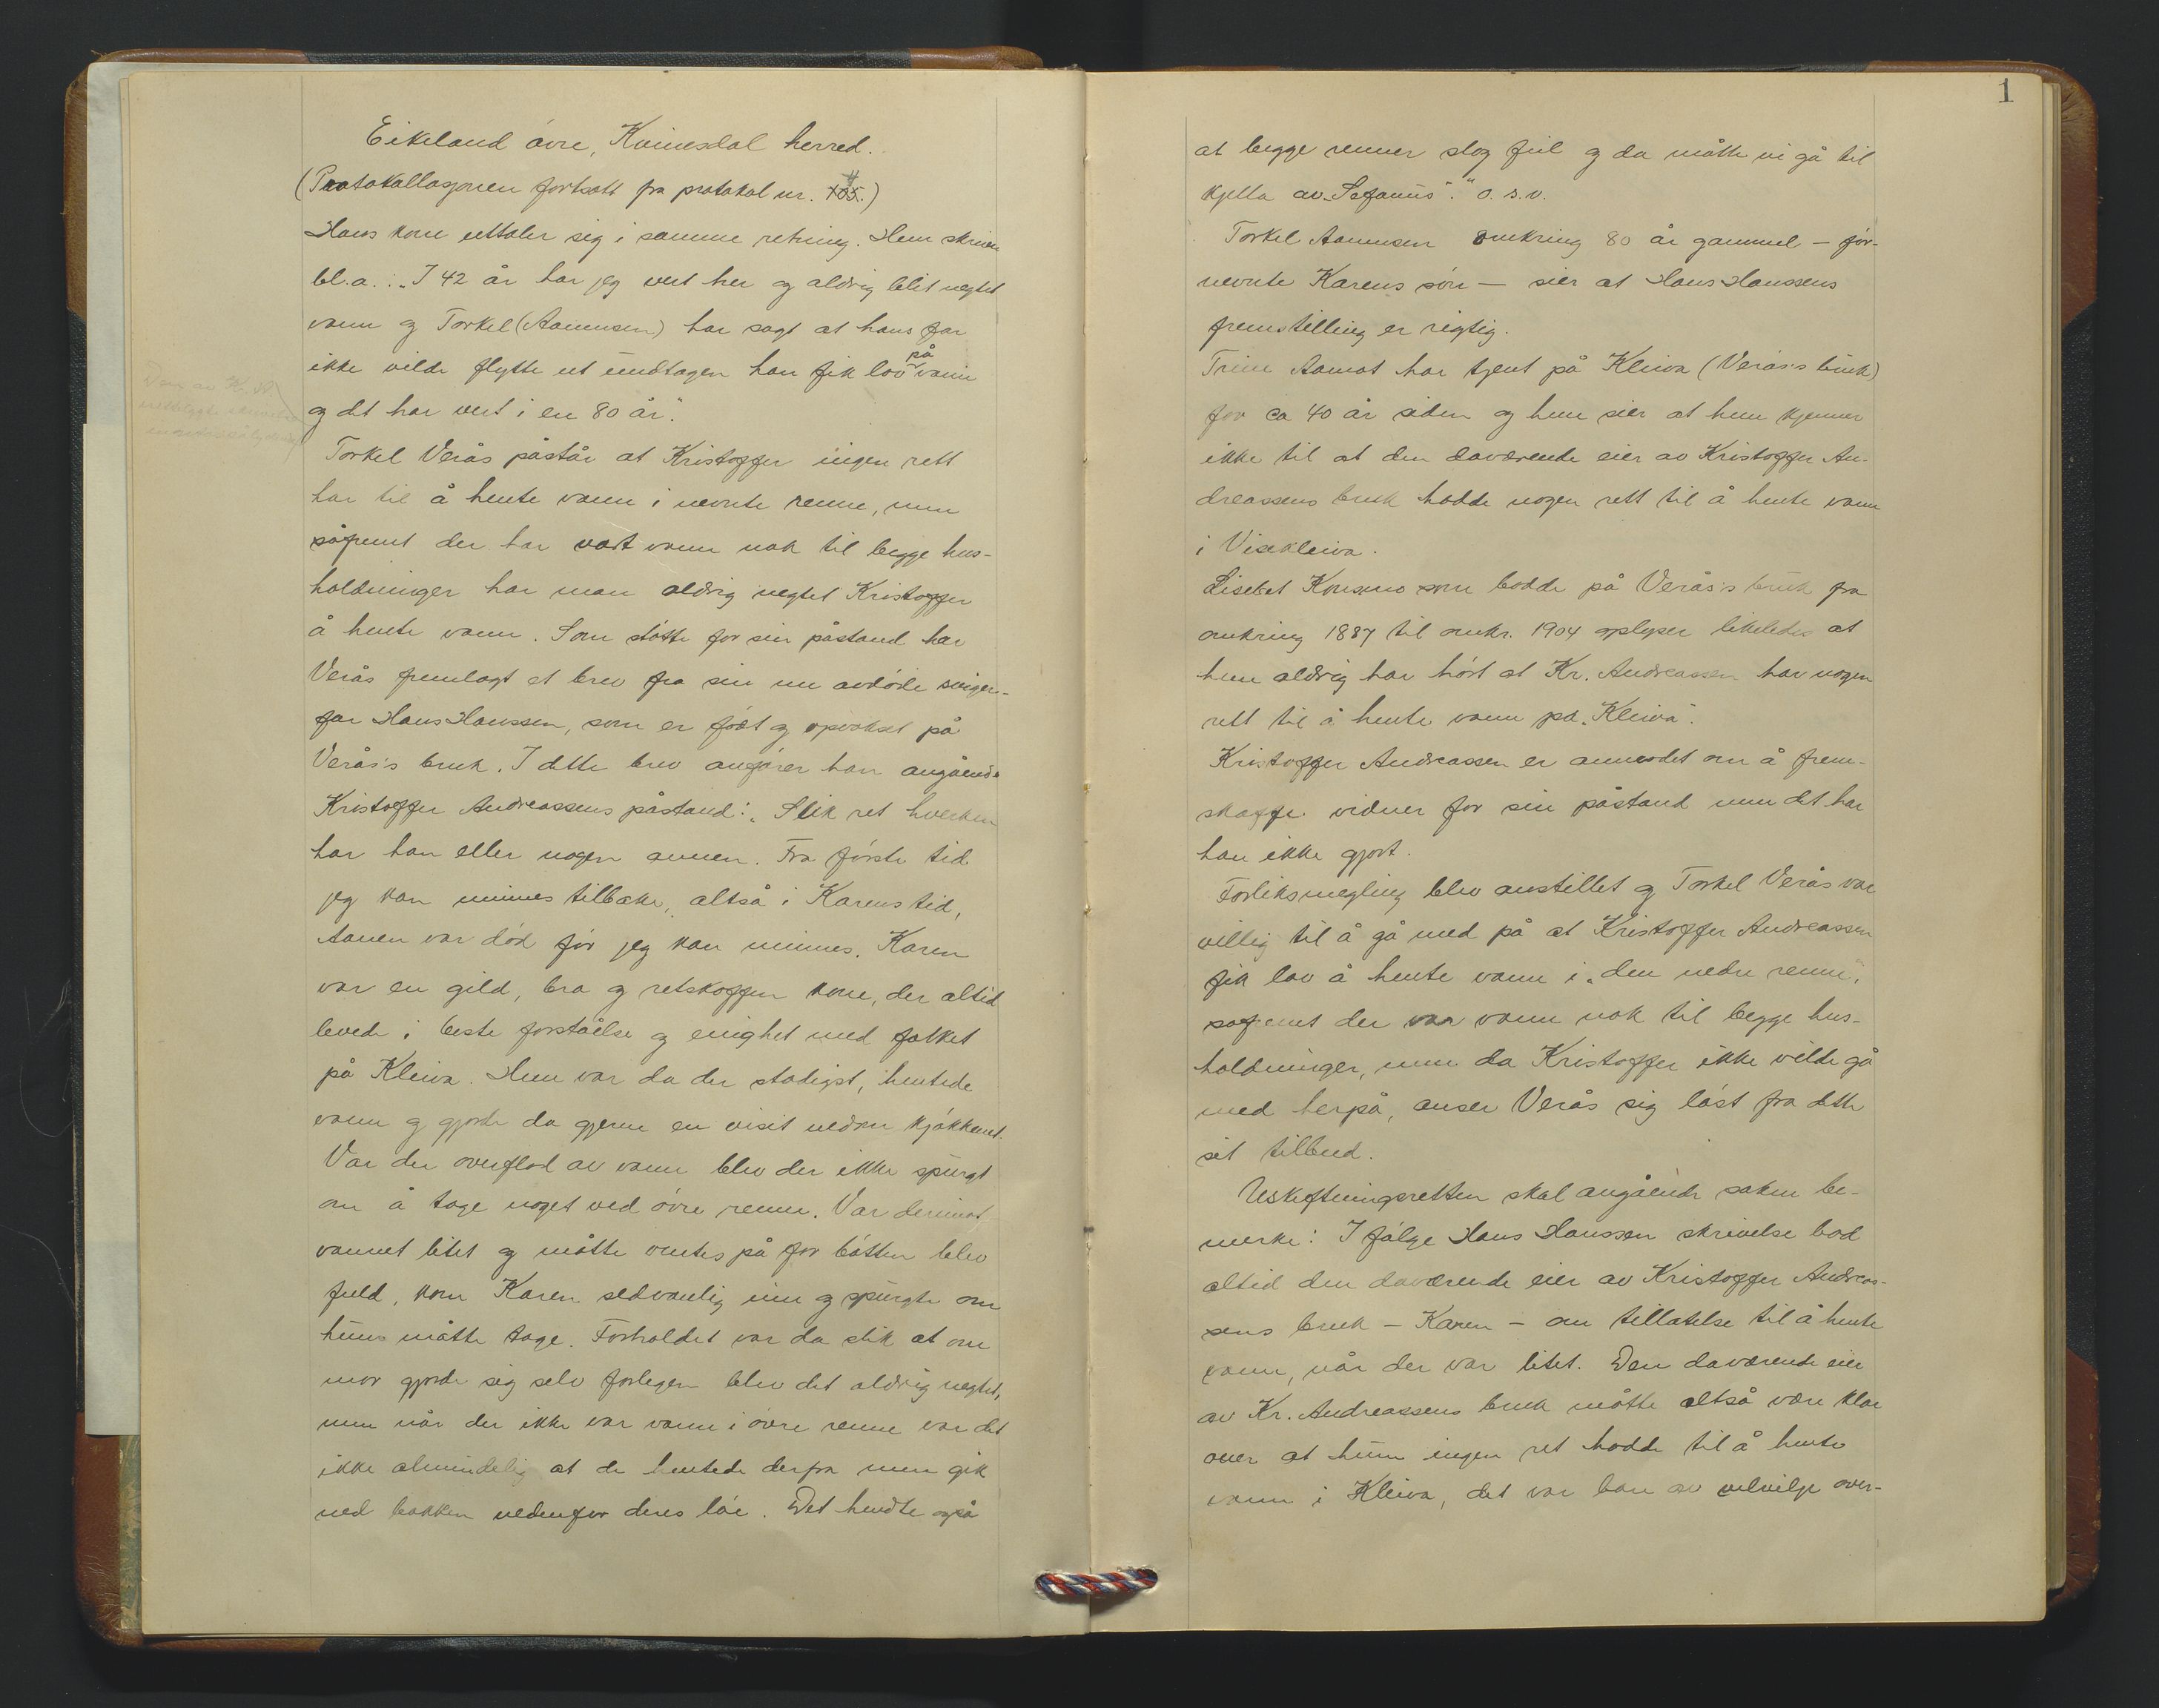 Eikeland øvre, Kvinesdal herred.
(Protokollasjonen fortsatt fra protokol nr. 4.)
Hans kone uttaler sig i samme retning. Hun skriver
bl.a.: „I 42 år har jeg vert her og aldrig blit negtet
vann og Torkel (Aanensen) har sagt at hans far
ikke vilde flytte ut undtagen han fik lov på vann
og det har vert i en 80 år".
Torkel Verås påstår at Kristoffer ingen rett
har til å hente vann i nevnte renne, men
såfremt der har vært vann nok til begge hus-
holdninger har man aldrig negtet Kristoffer
å hente vann. Som støtte for sin påstand har
Verås fremlagt et brev fra sin nu avdøde sviger-
far Hans Hanssen, som er født og opvokset på
Verås's bruk. I dette brev anfører han angående
Kristoffer Andreassens påstand: „Slik ret hverken
har han eller nogen annen. Fra første tid
jeg kan minnes tilbake, altså i Karens tid,
Aanen var død før jeg kan minnes. Karen
var en gild, bra og retskaffen kone, der altid
levede i beste forståelse og enighet med folket
på Kleiva. Hun var da der stadigst, hentede
vann og gjorde da gjerne en visit nedom kjøkkenet.
Var der overflod av vann blev der ikke spurgt
om å tage noget ved øvre renne. Var derimot
vannet litet og måtte ventes på før bøtten blev
fuld, kom Karen sedvanlig inn og spurgte om
huns måtte tage. Forholdet var da slik at om
mor gjorde sig selv forlegen blev det aldrig negtet,
men når der ikke var vann i øvre renne var det
ikke almindelig at de hentede derfra men gik
ned bakken nedenfor deres løe. Det hendte også
1
at begge renner slog feil og da måtte vi gå til
kjella av „Sefanias"." o.s.v.
Torkel Aanensen omkring 80 år gammel — før-
nevnte Karens søn — sier at Hans Hanssens
fremstilling er rigtig.
Trine Aamot har tjent på Kleiva (Verås's bruk)
for ca 40 år siden og hun sier at hun kjenner
ikke til at den daværende eier av Kristoffer An-
dreassens bruk hadde nogen rett til å hente vann
i Visekleiva.
Lisebet Konsmo som bodde på Verås's bruk fra
omkring 1887 til omkr. 1904 oplyser likeledes at
hun aldrig har hørt at Kr. Andreassen har nogen
rett til å hente vann på „Kleiva".
Kristoffer Andreassen er anmodet om å frem-
skaffe vidner for sin påstand men det har
han ikke gjort.
Forliksmegling blev anstillet og Torkel Verås var
villig til å gå med på at Kristoffer Andreassen
fik lov å hente vann i „den nedre renne",
såfremt der var vann nok til begge hus-
holdninger, men da Kristoffer ikke vilde gå
med herpå, anser Verås sig løst fra dette
sit tilbud.
Utskiftningsretten skal angående saken be-
merke: I følge Hans Hanssen skrivelse bad
altid den daværende eier av Kristoffer Andreas-
sens bruk – Karen – om tillatelse til å hente
vann, når der var litet. Den daværende eier
av Kr. Andreassens bruk måtte altså være klar
over at hun ingen ret hadde til å hente
vann i Kleiva, det var bare av velvilje over-